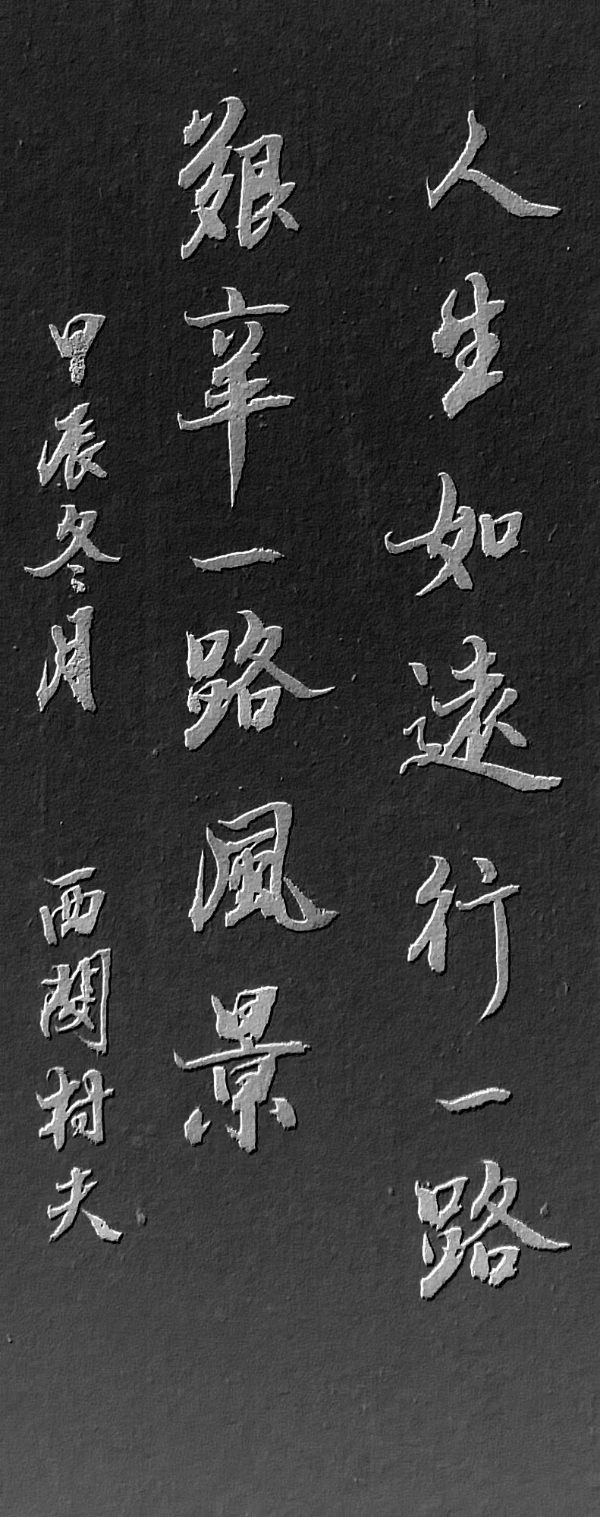 人生如遠行一路
艱辛一路風景
甲辰冬月 西閣村夫